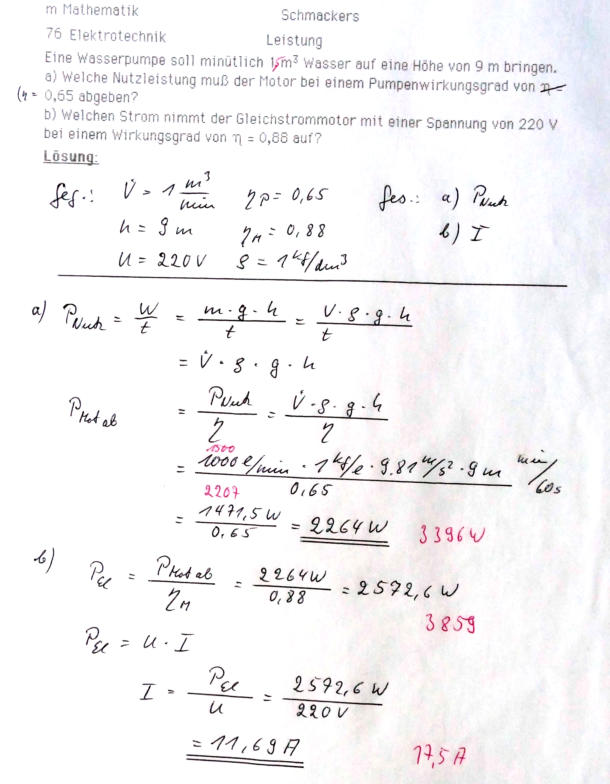 m Mathematik
Schmackers
76 Elektrotechnik
Leistung
Eine Wasserpumpe soll minütlich 1,5m³ Wasser auf eine Höhe von 9 m bringen.
a) Welche Nutzleistung muß der Motor bei einem Pumpenwirkungsgrad von η =
(η = 0,65 abgeben?
b) Welchen Strom nimmt der Gleichstrommotor mit einer Spannung von 220 V
bei einem Wirkungsgrad von η = 0,88 auf?
Lösung:
Geg.: V̇ = 1 m³/min ηP = 0,65 Ges.: a) PNutz
h = 9 m ηM = 0,88 b) I
U = 220 V ρ = 1 kg/dm³
a) PNutz = W/t = m · g · h / t = V · ρ · g · h / t
= V̇ · ρ · g · h
PMot ab = PNutz / η = V̇ · ρ · g · h / η
1500
= 1000 l/min · 1 kg/l · 9,81 m/s² · 9 m / 0,65 min/60s
2207
= 1471,5 W / 0,65 = 2264 W 3396 W
b) PEl = PMot ab / ηM = 2264 W / 0,88 = 2572,6 W
3859
PEl = U · I
I = PEl / U = 2572,6 W / 220 V
= 11,69 A 17,5 A